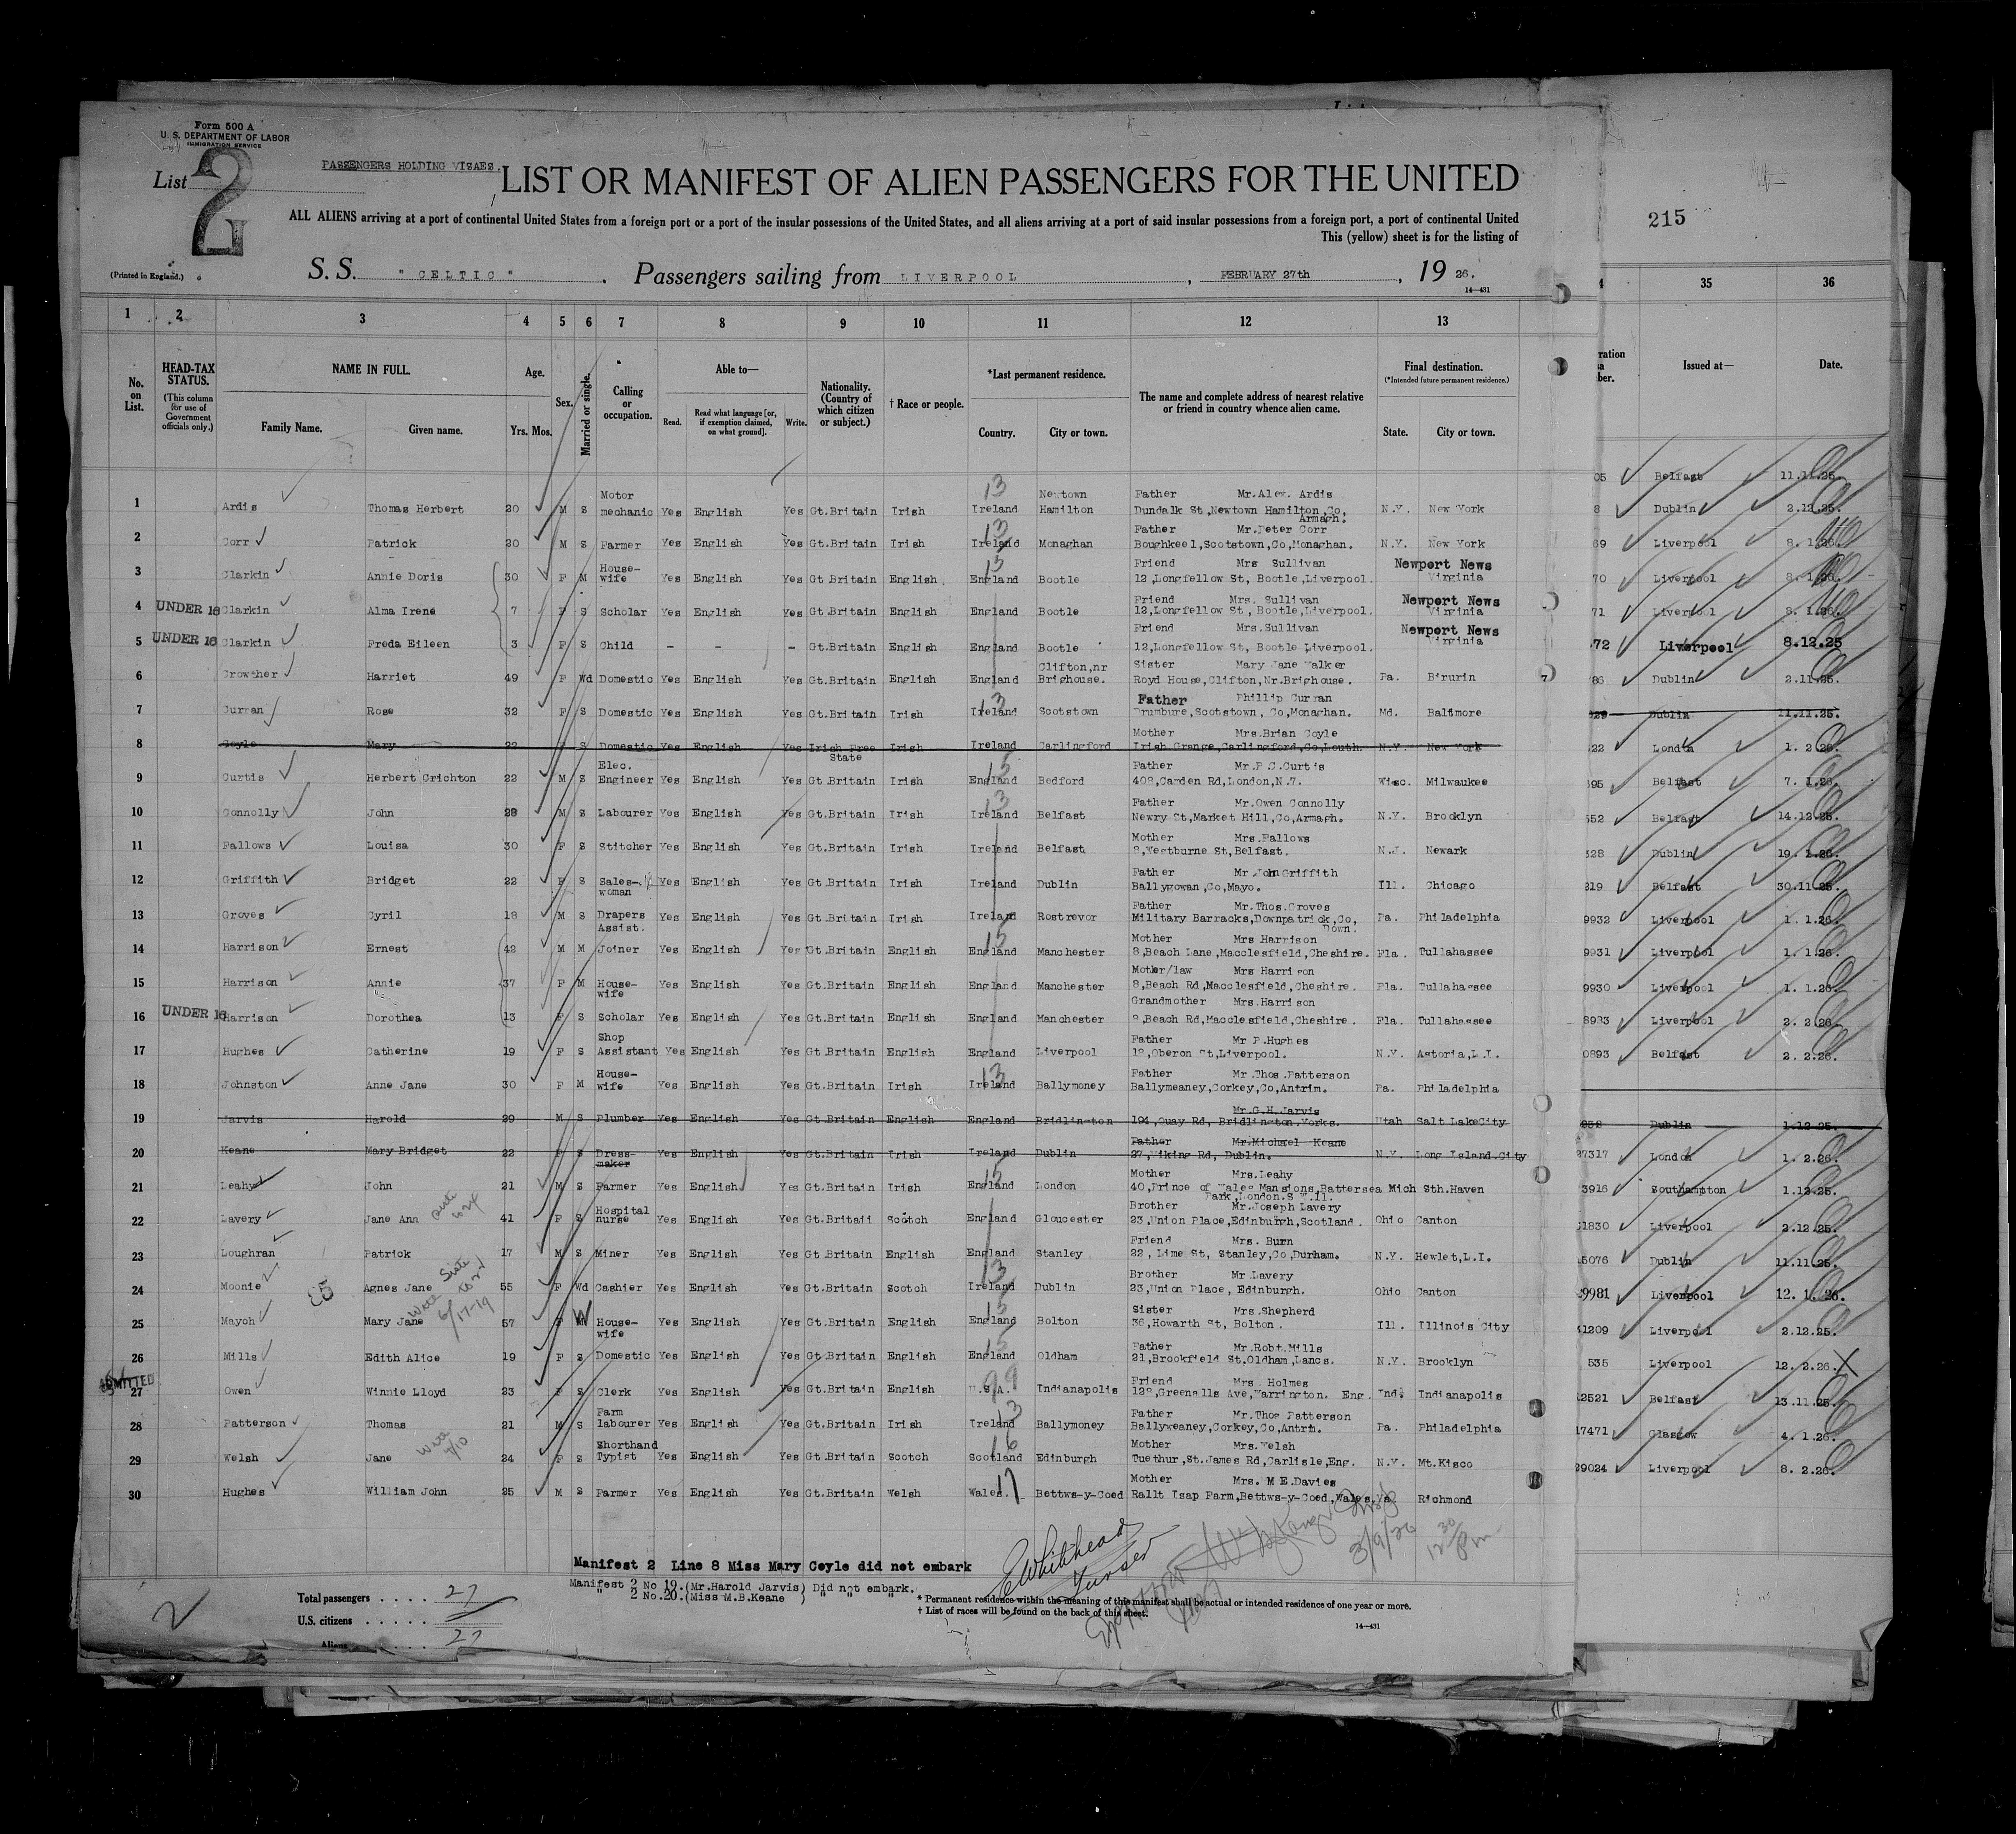 Form 500 A
U. S. DEPARTMENT OF LABOR
IMMIGRATION SERVICE
List 2
PASSENGERS HOLDING VISAES.
LIST OR MANIFEST OF ALIEN PASSENGERS FOR THE UNITED
ALL ALIENS arriving at a port of continental United States from a foreign port or a port of the insular possessions of the United States, and all aliens arriving at a port of said insular possessions from a foreign port, a port of continental United
This (yellow) sheet is for the listing of
215
(Printed in England.)
S. S. "CELTIC". Passengers sailing from LIVERPOOL, FEBRUARY 27th, 19 26.
14—431
1 2 3 4 5 6 7 8 9 10 11 12 13 35 36
No. on List.
HEAD-TAX STATUS.
(This column for use of Government officials only.)
NAME IN FULL.
Family Name. Given name.
Age.
Yrs. Mos.
Sex.
Married or single.
Calling or occupation.
Able to—
Read. Read what language [or, if exemption claimed, on what ground]. Write.
Nationality. (Country of which citizen or subject.)
† Race or people.
*Last permanent residence.
Country. City or town.
The name and complete address of nearest relative or friend in country whence alien came.
Final destination.
(*Intended future permanent residence.)
State. City or town.
Issued at— Date.
1 Ardis Thomas Herbert 20 M S Motor mechanic Yes English Yes Gt.Britain Irish 13 Ireland Newtown Hamilton Father Mr.Alex. Ardis Dundalk St,Newtown Hamilton,Co, Armagh. N.Y. New York 05 Belfast 11.11.25.
2 Corr Patrick 20 M S Farmer Yes English Yes Gt.Britain Irish 13 Ireland Monaghan Father Mr.Peter Corr Boughkeel,Scotstown,Co,Monaghan. N.Y. New York 8 Dublin 2.12.25.
3 Clarkin Annie Doris 30 F M House-wife Yes English Yes Gt Britain English 15 England Bootle Friend Mrs Sullivan 12,Longfellow St, Bootle,Liverpool. Newport News Virginia 69 Liverpool 8. 1.26.
4 UNDER 16 Clarkin Alma Irene 7 F S Scholar Yes English Yes Gt.Britain English England Bootle Friend Mrs. Sullivan 12,Longfellow St, Bootle,Liverpool. Newport News Virginia 70 Liverpool 8. 1.26.
5 UNDER 16 Clarkin Freda Eileen 3 F S Child - - - Gt.Britain English England Bootle Friend Mrs.Sullivan 12,Longfellow St, Bootle Liverpool. Newport News Virginia 71 Liverpool 8. 1.26.
6 Crowther Harriet 49 F Wd Domestic Yes English Yes Gt.Britain English England Clifton,nr Brighouse. Sister Mary Jane Walker Royd House,Clifton,Nr.Brighouse. Pa. Birurin 72 Liverpool 8.12.25
7 Curran Rose 32 F S Domestic Yes English Yes Gt.Britain Irish 13 Ireland Scotstown Father Phillip Curran Drumbure,Scotstown, Co,Monaghan. Md. Baltimore 86 Dublin 2.11.25.
8 Coyle Mary 22 F S Domestic Yes English Yes Irish Free State Irish Ireland Carlingford Mother Mrs.Brian Coyle Irish Grange,Carlingford,Co,Louth. N.Y. New York Dublin 11.11.25.
9 Curtis Herbert Crichton 22 M S Elec. Engineer Yes English Yes Gt Britain Irish 15 England Bedford Father Mr.P.C.Curtis 408,Camden Rd,London,N.7. Wisc. Milwaukee 22 London 1. 2.26.
10 Connolly John 28 M S Labourer Yes English Yes Gt.Britain Irish 13 Ireland Belfast Father Mr.Owen Connolly Newry St,Market Hill,Co,Armagh. N.Y. Brooklyn 95 Belfast 7. 1.26.
11 Fallows Louisa 30 F S Stitcher Yes English Yes Gt.Britain Irish Ireland Belfast Mother Mrs.Fallows 8,Westburne St,Belfast. N.J. Newark 552 Belfast 14.12.25.
12 Griffith Bridget 22 F S Sales-woman Yes English Yes Gt.Britain Irish Ireland Dublin Father Mr.John Griffith Ballygowan,Co,Mayo. Ill. Chicago 328 Dublin 19. 1.26.
13 Groves Cyril 18 M S Drapers Assist. Yes English Yes Gt.Britain Irish Ireland Rostrevor Father Mr.Thos.Groves Military Barracks,Downpatrick,Co, Down. Pa. Philadelphia 219 Belfast 30.11.25.
14 Harrison Ernest 42 M M Joiner Yes English Yes Gt.Britain English 15 England Manchester Mother Mrs Harrison 8,Beach Lane,Macclesfield,Cheshire. Fla. Tullahassee 9932 Liverpool 1. 1.26.
15 Harrison Annie 37 F M House-wife Yes English Yes Gt.Britain English England Manchester Mother/law Mrs Harrison 8,Beach Rd,Macclesfield,Cheshire. Fla. Tullahassee 9931 Liverpool 1. 1.26.
16 UNDER 16 Harrison Dorothea 13 F S Scholar Yes English Yes Gt.Britain English England Manchester Grandmother Mrs.Harrison 8,Beach Rd,Macclesfield,Cheshire. Fla. Tullahassee 9930 Liverpool 1. 1.26.
17 Hughes Catherine 19 F S Shop Assistant Yes English Yes Gt.Britain English England Liverpool Father Mr P.Hughes 18,Oberon St,Liverpool. N.Y. Astoria,L.I. 8983 Liverpool 2. 2.26.
18 Johnston Anne Jane 30 F M House-wife Yes English Yes Gt.Britain Irish 13 Ireland Ballymoney Father Mr.Thos.Patterson Ballymeaney,Corkey,Co,Antrim. Pa. Philadelphia 0893 Belfast 2. 2.26.
19 Jarvis Harold 29 M S Plumber Yes English Yes Gt.Britain English England Bridlington Mr.G.H.Jarvis 194,Quay Rd, Bridlington.Yorks. Utah Salt LakeCity
20 Keane Mary Bridget 22 F S Dress-maker Yes English Yes Gt.Britain Irish Ireland Dublin Father Mr.Michael Keane 27,Viking Rd, Dublin. N.Y. Long Island.City Dublin 1.12.25.
21 Leahy John 21 M S Farmer Yes English Yes Gt.Britain Irish 15 England London Mother Mrs.Leahy 40,Prince of Wales Mansions,Battersea Park,London.S W.11. Mich Sth.Haven 27317 London 1. 2.26.
22 Lavery Jane Ann 41 F S Hospital nurse Yes English Yes Gt.Britaii Scotch England Gloucester Brother Mr.Joseph Lavery 23,Union Place,Edinburgh,Scotland. Ohio Canton 3916 Southampton 1.12.25.
23 Loughran Patrick 17 M S Miner Yes English Yes Gt Britain English England Stanley Friend Mrs. Burn 22, Lime St, Stanley,Co,Durham. N.Y. Hewlet,L.I. 1830 Liverpool 2.12.25.
24 Moonie Agnes Jane 55 F Wd Cashier Yes English Yes Gt.Britain Scotch 13 Ireland Dublin Brother Mr.Lavery 23,Union Place, Edinburgh. Ohio Canton 5076 Dublin 11.11.25.
25 Mayoh Mary Jane 57 F W House-wife Yes English Yes Gt.Britain English 15 England Bolton Sister Mrs.Shepherd 36,Howarth St, Bolton. Ill. Illinois City 9981 Liverpool 12. 1. 26.
26 Mills Edith Alice 19 F S Domestic Yes English Yes Gt.Britain English 15 England Oldham Father Mr.Robt.Mills 21,Brookfield St.Oldham,Lancs. N.Y. Brooklyn 1209 Liverpool 2.12.25.
ADMITTED
27 Owen Winnie Lloyd 23 F S Clerk Yes English Yes Gt.Britain English 99 U.S.A. Indianapolis Friend Mrs. Holmes 122,Greenalls Ave,Warrington. Eng. Ind. Indianapolis 535 Liverpool 12. 2.26.
28 Patterson Thomas 21 M S Farm labourer Yes English Yes Gt.Britain Irish 13 Ireland Ballymoney Father Mr.Thos Patterson Ballyweaney,Corkey,Co,Antrm. Pa. Philadelphia 2521 Belfast 13.11.25.
29 Welsh Jane 24 F S Shorthand Typist Yes English Yes Gt.Britain Scotch 16 Scotland Edinburgh Mother Mrs.Welsh Tuethur,St.James Rd,Carlisle,Eng. N.Y. Mt.Kisco 17471 Glasgow 4. 1.26.
30 Hughes William John 25 M S Farmer Yes English Yes Gt.Britain Welsh 17 Wales. Bettws-y-Coed Mother Mrs. M E.Davies Rallt Isap Farm,Bettws-y-Coed,Wales. Va. Richmond 29024 Liverpool 8. 2.26.
Manifest 2 Line 8 Miss Mary Coyle did not embark
Manifest 2 No 19.(Mr.Harold Jarvis) Did not embark.
" 2 No.20.(Miss M.B.Keane ) " " "
E Whitehead
Purser
3/9/26
12 30 Pm
Total passengers . . . . . 27
U.S. citizens . . . . . .
Aliens 27
2
* Permanent residence within the meaning of this manifest shall be actual or intended residence of one year or more.
† List of races will be found on the back of this sheet.
14—431